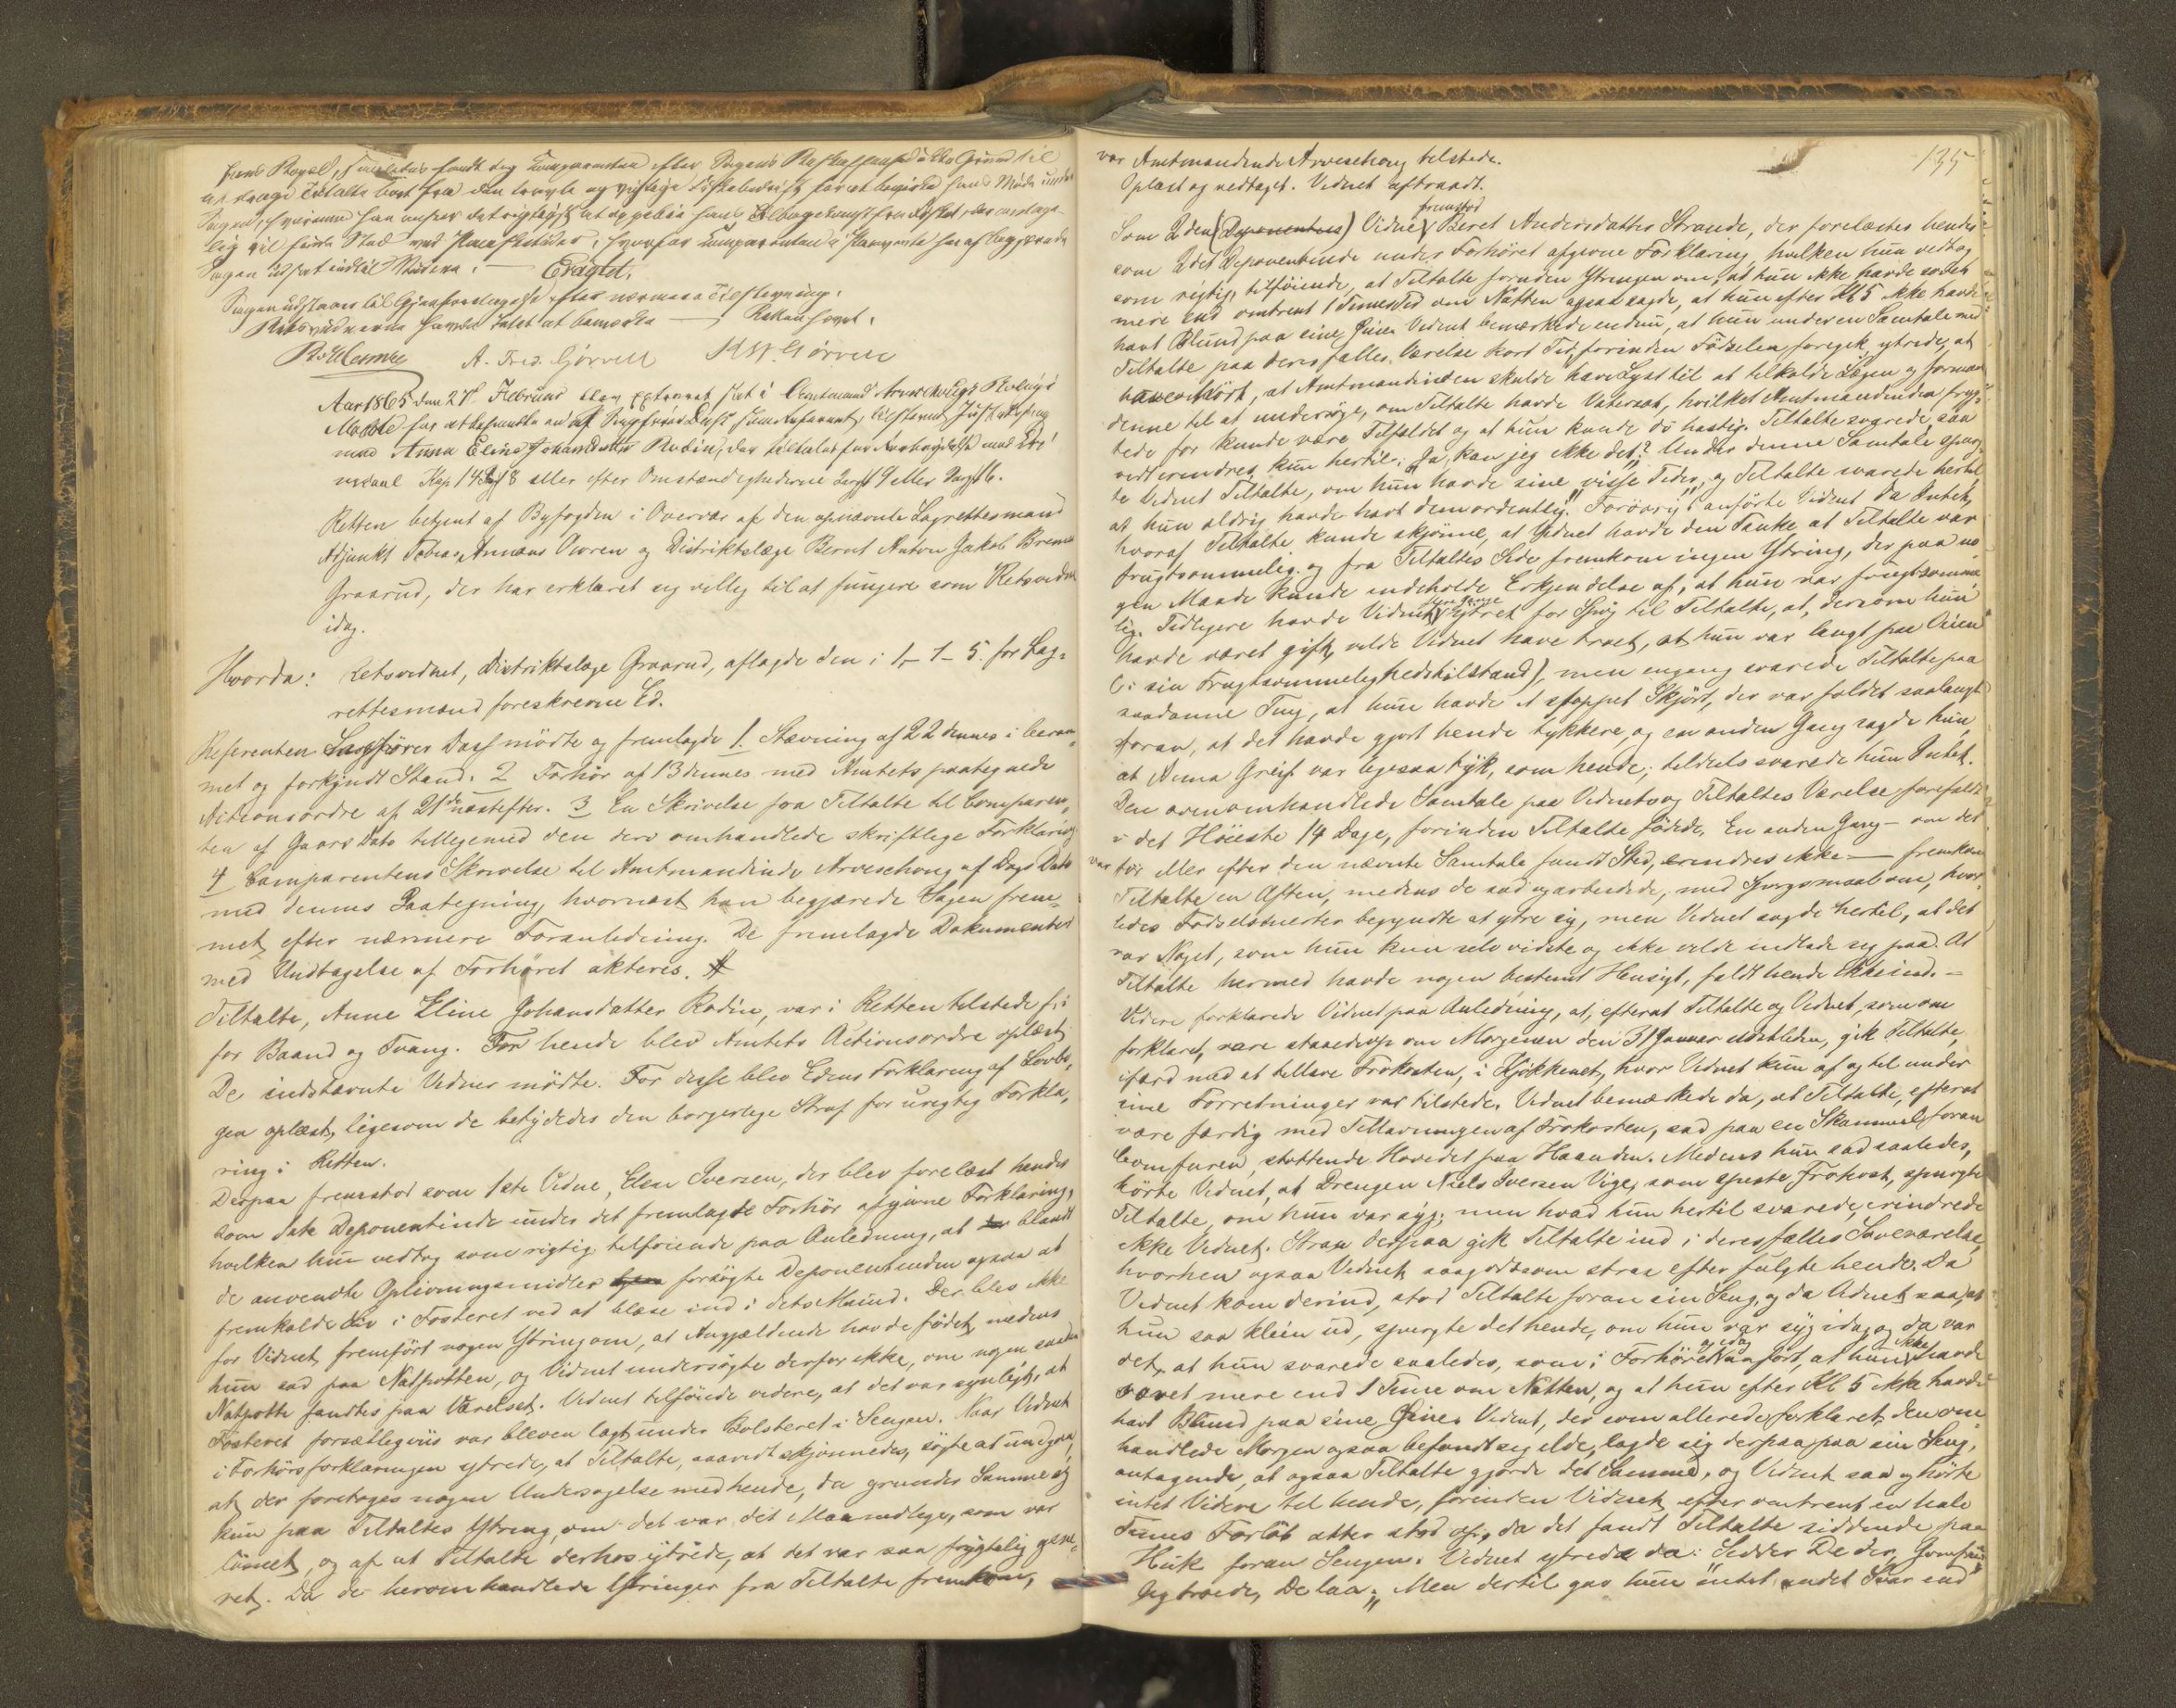 at drage Tiltalte bort fra den
Sagen udsat indtil Videre. — Eragtet.
Sagen udstaaer til Gjenforetagelse efter nærmere Tilsigelse.
A. Fred. Gørvell
Aar 1865 den 27de Februar blev extraret Ret i Amtmand Arveschougs Bolig i
Molde for at behandle en af
mod Anna Eline Johansdatter Rodin, der tiltales for Overtrædelse mod Cri¬
minal Kap 14 § 8 eller efter Omstændighederne
Retten betjent af Byfogden i Overvær af den opnævnte Lagrettesmand
Adjunkt Tobias Annæus Ovren og Distriktslæge Bernt Anton Jakob Brenne
Graarud, der har erklæret sig villig til at fungere som Retsvidne
idag.
Hvorda: Retsvidnet, Distriktslæge Graarud, aflagde den i 1-1-5 for Lag¬
rettesmænd foreskrevne Ed.
Referenten Sagfører Dass mødte og fremlagde 1. Stævning af 22 dennes i beram¬
met og forkyndt Stand. 2 Forhør af 13 dennes med Amtets paategnede
Actionsordre af 21de næstefter. 3 En Skrivelse fra Tiltalte til Comparen¬
ten af Gaars Dato tilligemed den deri omhandlede skriftlige Forklaring
4 Comparentens Skrivelse til Amtmandinde Arveschoug af Dags Dato
med dennes Paategning, hvornæst han begjærede Sagen frem¬
met efter nærmere Foranledning. De fremlagde Dokumenter
med Undtagelse af Forhøret akteres.
Tiltalte, Anne Eline Johansdatter Rodin, var i Retten tilstede fri
for Baand og Tvang. For hende blev Amtets Actionsordre oplæst.
De indstævnte Vidner mødte. For disse blev Edens Forklaring af Lovbo¬
gen oplæst, ligesom de betydedes den borgerlige Straf for urigtig Forkla¬
ring i Retten.
Derpaa fremstod som 1ste Vidne, Elen Iversen, der blev forelæst hendes
som 1ste Deponentinde under det fremlagte Forhør afgivne Forklaring,
hvilken hun vedtog som rigtig tilføiende paa Anledning, at blandt
de anvendte Oplivningsmidler forsøgte Deponentinden ogsaa at
fremkalde Liv i Fosteret ved at blæse ind i dets Mund. Der blev ikke
for Vidnet fremført nogen Ytring om, at Angjældende havde født, medens
hun sad paa Natpotten, og Vidnet undersøgte derfor ikke, om nogen saadan
Natpotte fandtes paa Værelset. Vidnet tilføiede videre, at det var synligt, at
Fosteret forsætligviis var bleven lagt under Bolsteret i Sengen. Naar Vidnet
i Forhørsforklaringen ytrede, at Tiltalte, saavidt skjønnedes, søgte at undgaa,
at der foretoges nogen Undersøgelse med hende, da grunder Samme sig
kun paa Tiltaltes Ytring om det var det Maanedlige, som var
kommet, og af at Tiltalte derhos ytrede, at det var saa frygtelig gene¬
ret. Da de heromhandlede Ytringer fra Tiltalte fremkom,
135
var Amtmandinde Arveschoug tilstede.
Oplæst og vedtaget. Vidnet aftraadt.
fremstod
Som 2den (Deponentens) Vidne Beret Andersdatter Strande, der forelæstes hendes
som 2det Deponentinde under Forhøret afgivne Forklaring, hvilken hun vedtog
som rigtig, tilføiende, at Tiltalte foruden Ytringen om, at hun ikke havde sovet
mere end omtrent 1 Times Tid om Natten ogsaa sagde, at hun efter Kl 5 ikke havde
havt Blund paa sine Øine. Vidnet bemærkede endnu, at hun under en Samtale med
Tiltalte paa deres fælles Værelse kort Tid, forinden Fødselen foregik, ytrede, at
have hørt, at Amtmandinden skulde have Lyst til at tilkalde Lægen og formaa
denne til at undersøge, om Tiltalte havde Vatersot, hvilket Amtmandinden fryg¬
tede for kunde være Tilfældet og at hun kunde dø hastig. Tiltalte svarede, saa
vidt erindres, kun hertil: Ja, kan jeg ikke det? Under denne Samtale spurg¬
te Vidnet Tiltalte, om hun havde sine „visse Tider“, og Tiltalte svarede hertil,
at hun aldrig havde havt dem ordentlig. Forøvrigt anførte Vidnet da Intet,
hvoraf Tiltalte kunde skjønne, at Vidnet havde den Tanke at Tiltalte var
frugtsommelig, og fra Tiltaltes Side fremkom ingen Ytring, der paa no¬
gen Maade kunde indeholde Erkjendelse af, at hun var frugtsomme¬
lig. Tidligere havde Vidnet flere Gange ytret for Spøg til Tiltalte, at, dersom hun
havde været gift, vilde Vidnet have troet, at hun var langt paa Veien
(: sin Frugtsommelighedstilstand), men engang svarede Tiltalte paa
saadanne Ting, at hun havde et stoppet Skjørt, der var faldet saalangt
foran, at det havde gjort hende tykkere, og en anden Gang sagde hun,
at Anna Greif var ligesaa tyk, som hende; tildels svarede hun Intet.
Den ovenomhandlede Samtale paa Vidnets og Tiltaltes Værelse forefaldt
i det Høieste 14 Dage, forinden Tiltalte fødede. En anden Gang — om det
var før eller efter den nævnte Samtale fandt Sted, erindres ikke — fremkom
Tiltalte en Aften, medens de sad og arbeidede, med Spørgsmaal om, hvor¬
ledes Fødselssmerter begyndte at ytre sig, men Vidnet sagde hertil, at det
var Noget, som hun kun selv vidste og ikke vilde indlade sig paa. At
Tiltalte hermed havde nogen bestemt Hensigt, faldt hende ikke ind. —
Videre forklarede Vidnet paa Anledning, at, efterat Tiltalte og Vidnet, som om
forklaret, vare staaede op om Morgenen den 31 Januar sidstleden, gik Tiltalte,
ifærd med at tillave Frokosten, i Kjøkkenet, hvor Vidnet kun af og til under
sine Forretninger var tilstede. Vidnet bemærkede da, at Tiltalte, efterat
være færdig med Tillavningen af Frokosten, sad paa en Skammel foran
Comfuren, støttende Hovedet paa Haanden. Medens hun sad saaledes,
hørte Vidnet, at Drengen Niels Iversen Vige, som spiste Frokost, spurgte
Tiltalte, om hun var syg; men hvad hun hertil svarede, erindrede
ikke Vidnet. Strax derpaa gik Tiltalte ind i deres fælles Soveværelse,
hvorhen ogsaa Vidnet saagodtsom strax efter fulgte hende. Da
Vidnet kom derind, stod Tiltalte foran sin Seng, og da Vidnet saa, at
hun saa klein ud, spurgte det hende, om hun var syg idag, og da var
det, at hun svarede saaledes, som i Forhøret og idag anført, at hun ikke havde
sovet mere end 1 Time om Natten, og at hun efter Kl 5 ikke havde
havt Blund paa sine Øine. Vidnet, der som allerede forklaret, den om¬
handlede Morgen ogsaa befandt sig ilde, lagde sig derpaa paa sin Seng,
antagende, at ogsaa Tiltalte gjorde det Samme, og Vidnet saa og hørte
intet Videre til hende, forinden Vidnet efter omtrent en halv
Times Forløb atter stod op, da det fandt Tiltalte siddende paa
Huk foran Sengen. Vidnet ytrede da: „Sidder De der, Jomfru
Jeg troede, De laa“; Men dertil gav hun intet andet Svar end